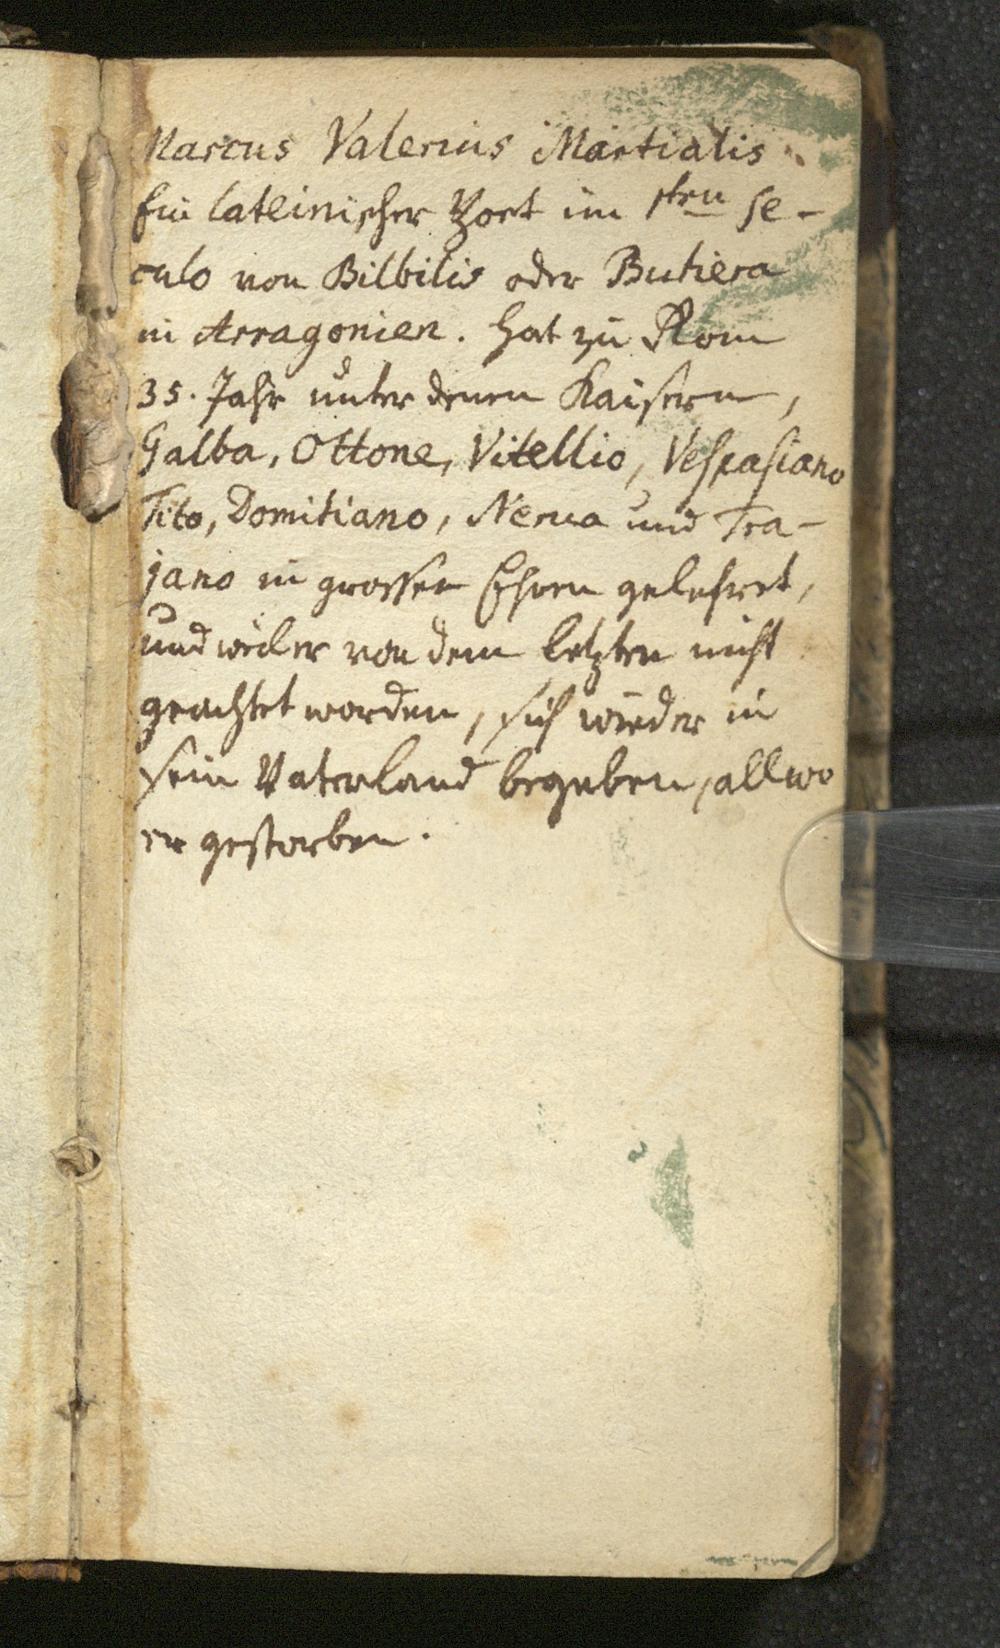 Marcus Valerius Martialis
Ein lateinischer Poet im 1sten Se-
culo von Bilbilis oder Butiera
in Arragonien. hat zu Rom
35. Jahr unter denen Kaisern,
Galba, Ottone, Vitellio, Vespasiano
Tito, Domitiano, Nerva und Tra-
jano in grossen Ehren gelehret,
und weiler von dem letzten nicht
geachtet worden, sich wieder in
sein Vaterland begeben, allwo
er gestorben.